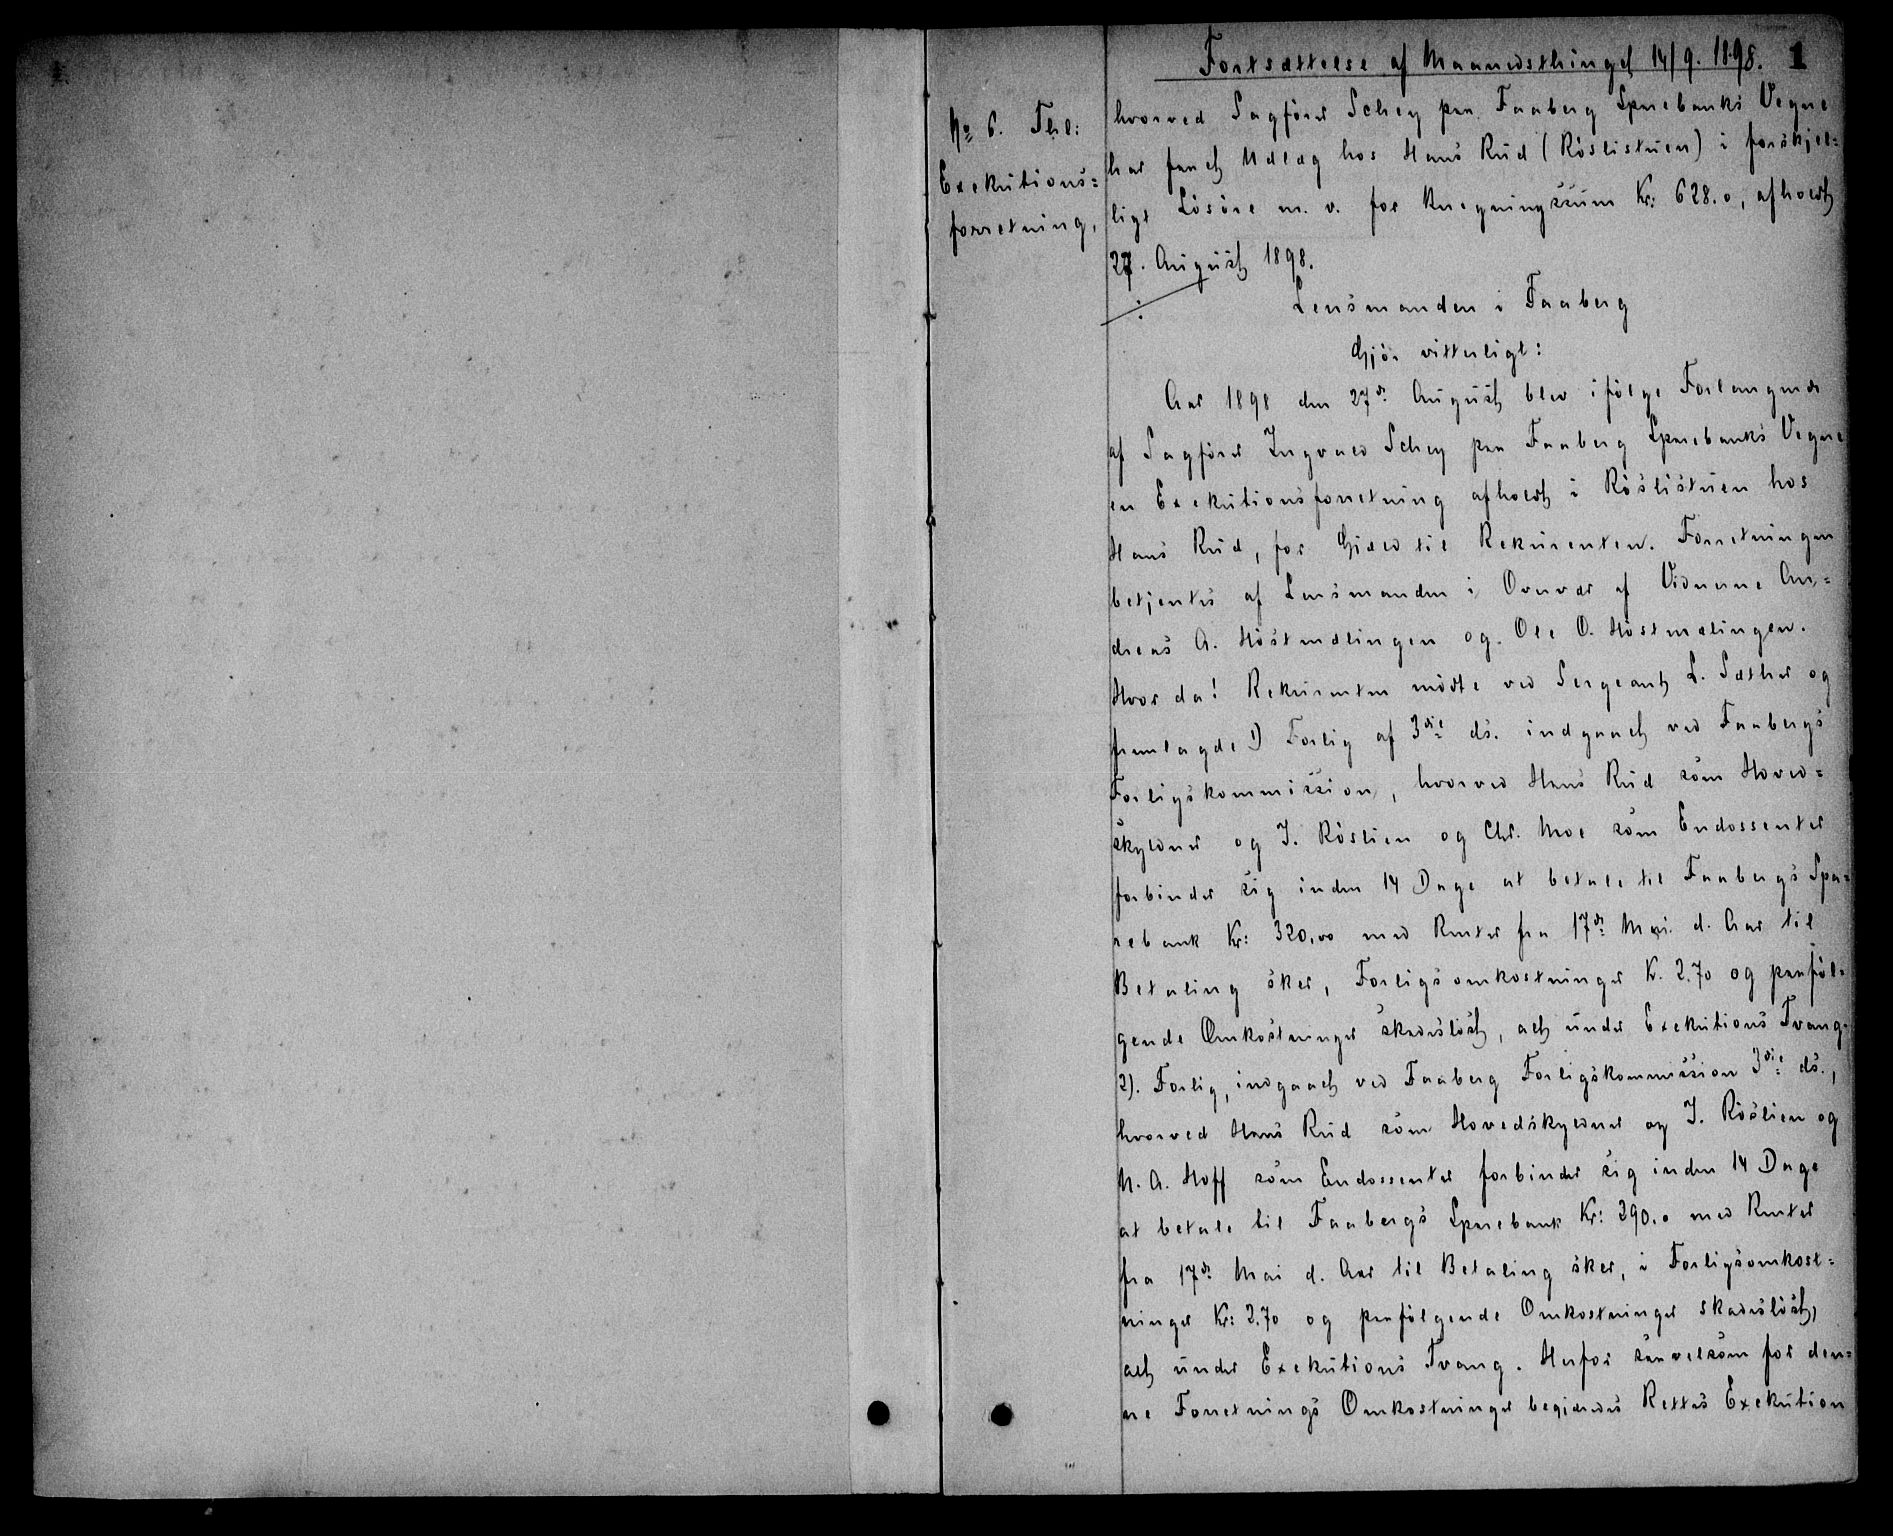 Fortsættelse af Maanedsthinget 14/9. 1898. 1
No 6. Thl:
Exekutions=
forretning,
hvorved Sagfører Schey paa Faaberg Sparebanks Vegne
har faaet Udlæg hos Hans Rud (Röslistuen) i forskjel=
ligt Lösöre m. v. for Kr: 628.0, afholdt
27. August 1898.
Lensmanden i Faaberg
Gjör vitterligt:
Aar 1898 den 27de August blev ifölge Forlangende
af Sagförer Ingvald Schey paa Faaberg Sparebanks Vegne
en Exekutionsforretning afholdt i Röslistuen hos
Hans Rud, for Gjæld til Rekurenten. Forretningen
betjentes af Lensmanden i Overvær af Vidnerne An=
dreas A. Höstmælingen og Ole O. Höstmælingen.
Hvor da! Rekurenten mödte ved Sergeant L. Sæther og
fremlagde 1) Forlig af 3die ds. indgaaet ved Faabergs
Forligskommission, hvorved Hans Rud som Hoved=
skyldner og J. Röslien og Chr. Moe som Endossenter
forbinder sig inden 14 Dage at betale til Faabergs Spa=
rebank Kr: 320,00 med Renter fra 17de Mai d. Aar til
Betaling sker, Forligsomkostninger K. 2.70 og paaföl=
gende Omkostninger skadeslöst, alt under Exekutions Tvang.
2). Forlig, indgaaet ved Faaberg Forligskommission 3die ds.,
hvorved Hans Rud som Hovedskyldner og J. Röslien og
N. A. Hoff som Endossenter forbinder sig inden 14 Dage
at betale til Faabergs Sparebank Kr: 290.0 med Renter
fra 17de Mai d. Aar til Betaling sker, i Forligsomkost=
ninger Kr: 2.70 og paafölgende Omkostninger skadeslöst,
alt under Exekutions Tvang. Herfor saavelsom for den=
ne Forretnings Omkostninger begjæredes Rettens Exekution